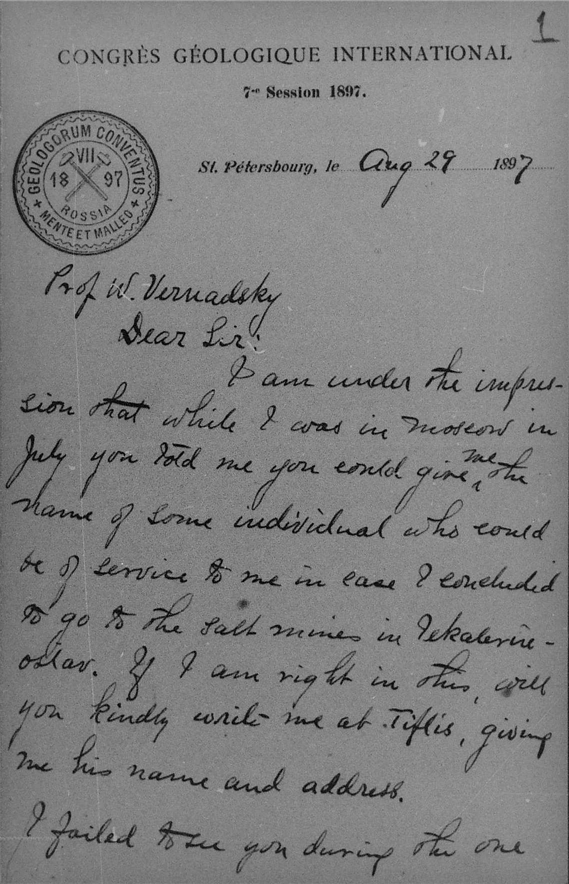 1
CONGRÈS GÉOLOGIQUE INTERNATIONAL
7me Session 1897.
GEOLOGORUM CONVENTUS
VII
18 97
ROSSIA
+ MENTE ET MALLEO +
St. Pétersbourg, le Aug 29 1897
Prof W. Vernadsky
Dear Sir:
I am under the impres-
sion that while I was in Moscow in
July you told me you could give me the
name of some individual who could
be of service to me in case I concluded
to go to the salt mines in Iekaterine-
oslav. If I am right in this, will
you kindly write me at Tiflis, giving
me his name and address.
I failed to see you during the one